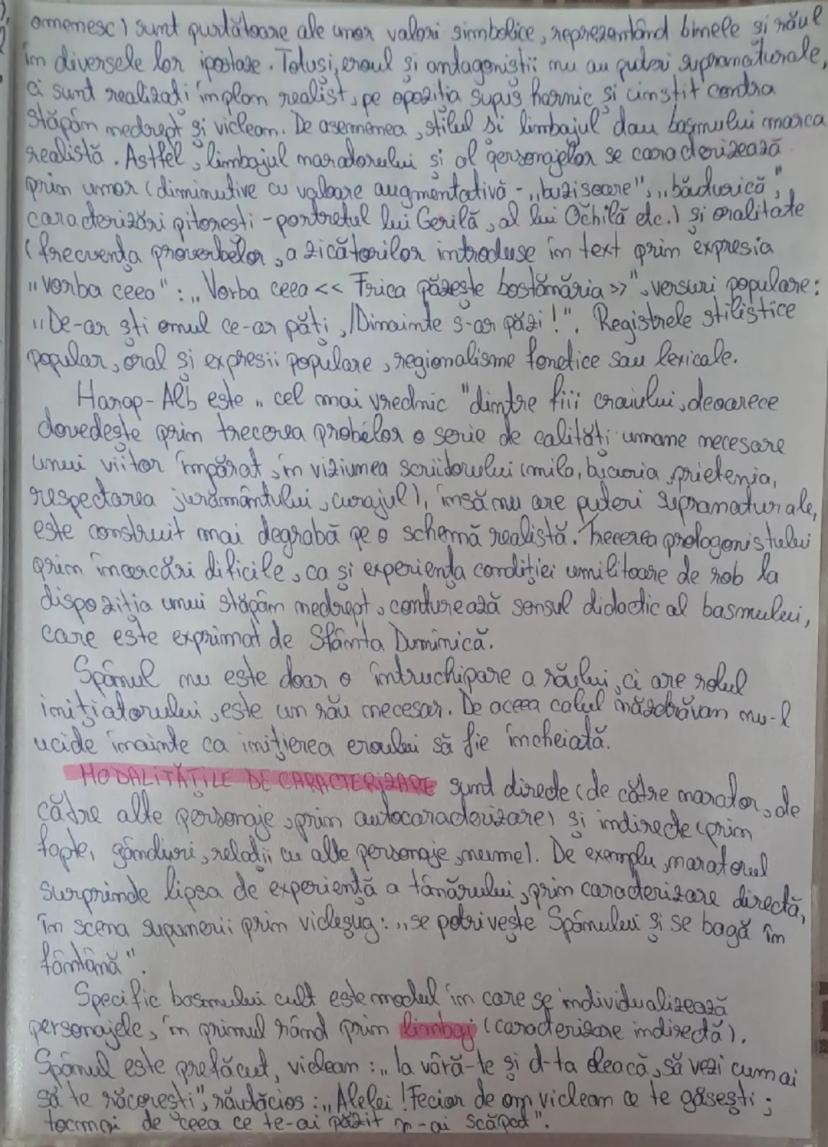 omenesc) sunt purtătoare ale unor valori simbolice, reprezentând binele și răul
în diversele lor ipostaze. Totuși, eroul și antagoniștii nu au puteri supranaturale,
ci sunt realizați în plan realist, pe opoziția supus harnic și cinstit contra
stăpân nedrept și viclean. De asemenea, stilul și limbajul dau basmului marca
realistă. Astfel, limbajul naratorului și al personajelor se caracterizează
prin umor (diminutive cu valoare augmentativă - „buzișoare", „băuturică",
caracterizări pitorești - portretul lui Gerilă, al lui Ochilă etc.) și oralitate
(frecvența proverbelor, a zicătorilor introduse în text prin expresia
„vorba ceea": „Vorba ceea << Frica păzește bostănăria >>", versuri populare:
„De-ar ști omul ce-ar păți, /Dinainte s-ar păzi!". Registrele stilistice
popular, oral și expresii populare, regionalisme fonetice sau lexicale.
Harap-Alb este „cel mai vrednic "dintre fiii craiului, deoarece
dovedește prin trecerea probelor o serie de calități umane necesare
unui viitor împărat, în viziunea scriitorului (mila, bucuria, prietenia,
respectarea jurământului, curajul), însă nu are puteri supranaturale,
este construit mai degrabă pe o schemă realistă. Trecerea protagonistului
prin încercări dificile, ca și experiența condiției umilitoare de rob la
dispoziția unui stăpân nedrept, conturează sensul didactic al basmului,
care este exprimat de Sfânta Duminică.
Spânul nu este doar o întruchipare a răului, ci are rolul
inițiatorului, este un rău necesar. De aceea calul năzdrăvan nu-l
ucide înainte ca inițierea eroului să fie încheiată.
MODALITĂȚILE DE CARACTERIZARE sunt directe (de către narator, de
către alte personaje, prin autocaracterizare) și indirecte (prin
fapte, gânduri, relații cu alte personaje, nume). De exemplu, naratorul
surprinde lipsa de experiență a tânărului, prin caracterizare directă,
în scena supunerii prin vicleșug: „se potrivește Spânului și se bagă în
fântână".
Specific basmului cult este modul în care se individualizează
personajele, în primul rând prin limbaj (caracterizare indirectă).
Spânul este prefăcut, viclean: „Ia vâră-te și d-ta oleacă, să vezi cum ai
să te răcorești", răutăcios: „Alelei! Fecior de om viclean ce te găsești;
tocmai de ceea ce te-ai păzit n-ai scăpat".